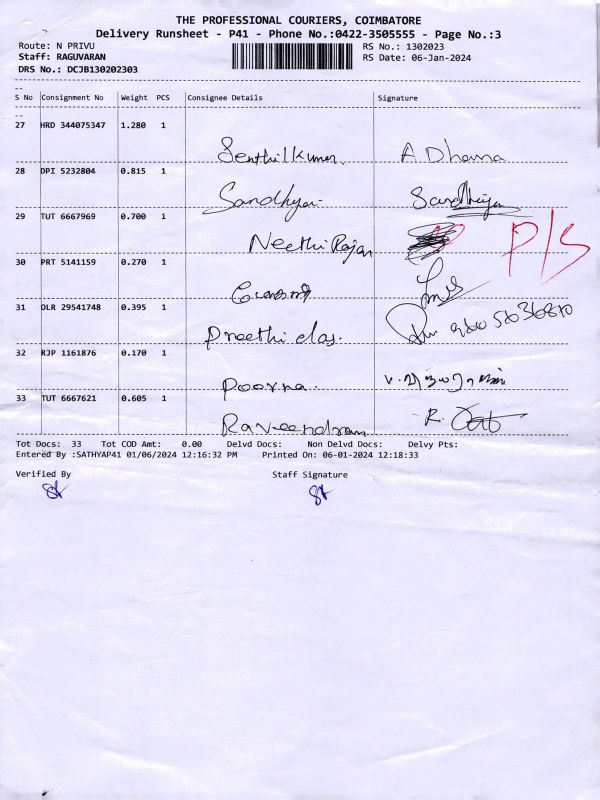 THE PROFESSIONAL COURIERS, COIMBATORE
Delivery Runsheet - P41 - Phone No.:0422-3505555 - Page No.:3
Route: N PRIVU
RS No.: 1302023
Staff: RAGUVARAN
RS Date: 06-Jan-2024
DRS No.: DCJB130202303
S No Consignment No Weight PCS Consignee Details Signature
27 HRD 344075347 1.280 1
Senthil Kumar. A Dharna
28 DPI 5232804 0.815 1
Sandhya Sandhiya
29 TUT 6667969 0.700 1
Neethi Rajan P/S
30 PRT 5141159 0.270 1
31 OLR 29541748 0.395 1
Preethi das.
32 RJP 1161876 0.170 1
Poorna.
33 TUT 6667621 0.605 1
Raveendran R.
Tot Docs: 33 Tot COD Amt: 0.00 Delvd Docs: Non Delvd Docs: Delvy Pts:
Entered By :SATHYAP41 01/06/2024 12:16:32 PM Printed On: 06-01-2024 12:18:33
Verified By Staff Signature